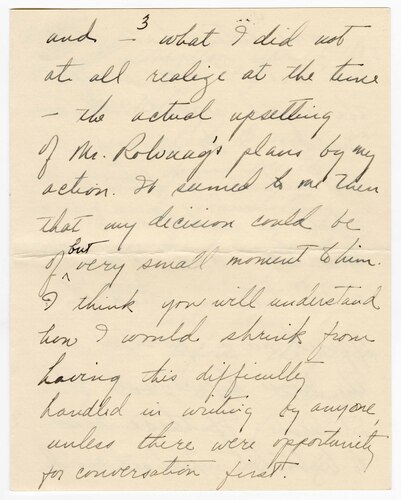 3
and - what I did not
at all realize at the time
- the actual upsetting
of Mr. Rolvaag's plans by my
action. It seemed to me then
that my decision could be
of but very small moment to him.
I think you will understand
how I would shrink from
having this difficulty
handled in writing by anyone,
unless there were opportunity
for conversation first.